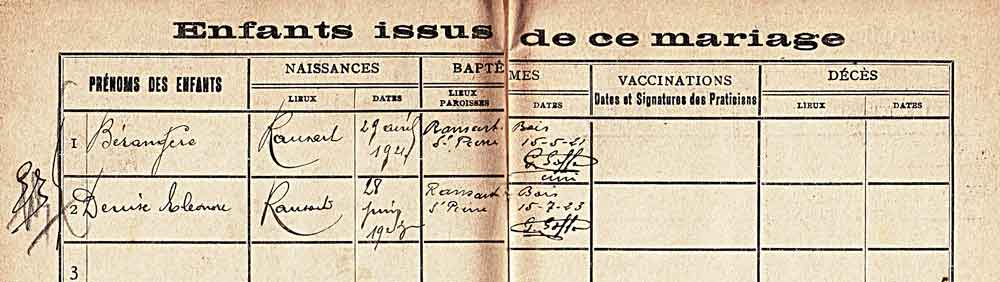 Enfants issus de ce mariage
PRÉNOMS DES ENFANTS
NAISSANCES
BAPTÊMES
VACCINATIONS
DÉCÈS
LIEUX
DATES
LIEUX
PAROISSES
DATES
Dates et Signatures des Praticiens
LIEUX
DATES
1 Bérangère
Ransart
29 avril
1921
Ransart-Bois
St Pierre
15-5-21
G. Goffe
curé
2 Denise Eleonore
Ransart
28
juin
1923
Ransart-Bois
St Pierre
15-7-23
G. Goffe
3